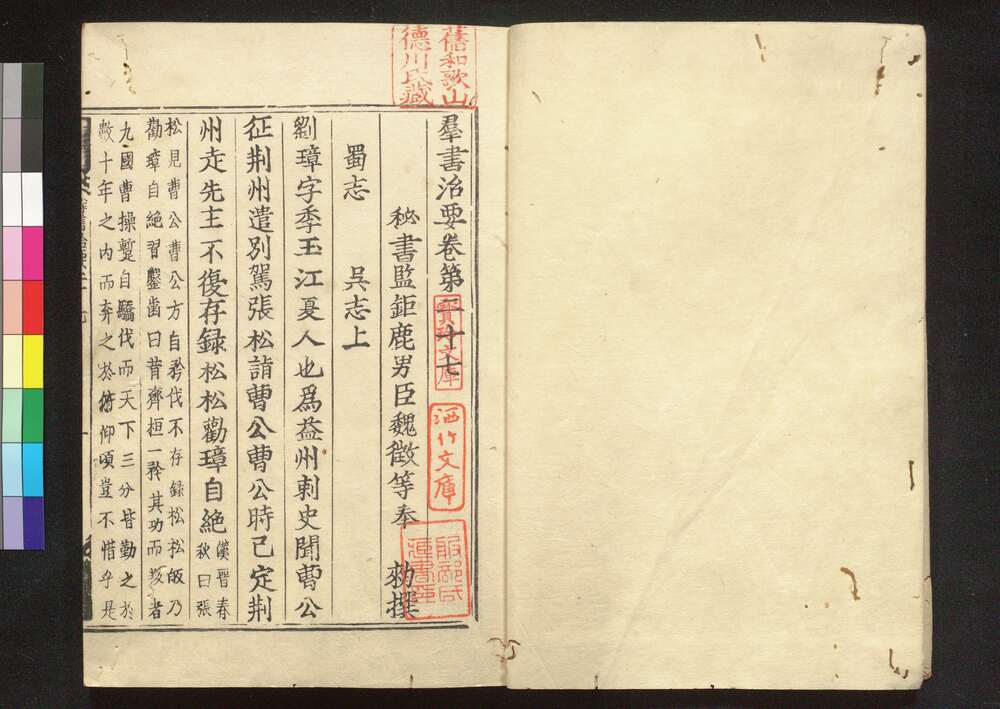 羣書治要卷第二十七
秘書監鉅鹿男臣魏徵等奉　勑撰
蜀志　吳志上
劉璋字季玉江夏人也爲益州刺史聞曹公
征荆州遣別駕張松詣曹公曹公時已定荆
州走先主不復存録松松勸璋自絶漢晉春
秋曰張
松見曹公曹公方自矜伐不存録松松皈乃
勸璋自絶習鑿齒曰昔齊桓一矜其功而叛者
九國曹操蹔自驕伐而天下三分皆勤之於
數十年之内而弃之於俯仰頃豈不惜乎是
舊和歌山
德川氏藏
寶玲文庫
洒竹文庫